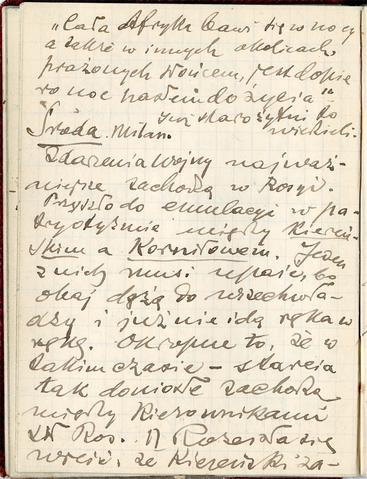 „Cała Afryka bawi się w nocy
a także w innych okolicach
prażonych słońcem, jest dopie
ro noc hasłem do życia”
Już starożytni to
wiedzieli.
Środa. Milan.
Zdarzenia wojny najważ-
niejsze zachodzą w Rosyi.
Przyszło do emulacyi w pa-
tryotyźmie między Kiereń-
skim a Korniłowem. Jeden
z nich musi upaść, bo
obaj dążą do wszechwła-
dzy i już nie idą ręka w
rękę. Okropne to, że w
takim czasie – starcia
tak doniosłe zachodzą
między kierownikami
Ros. Rozeszła się
wieść, że Kiereński za-